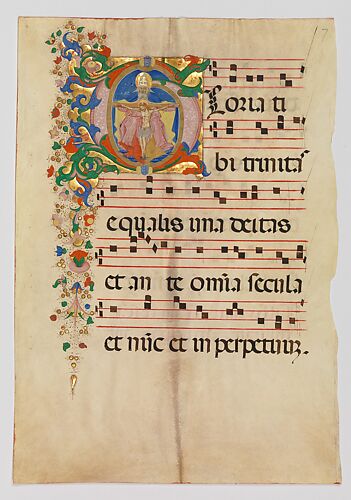 Gloria ti
bi trinitas
equalis una deitas
et an te om̄ia secula
et nūc et in perpetuuʒ.